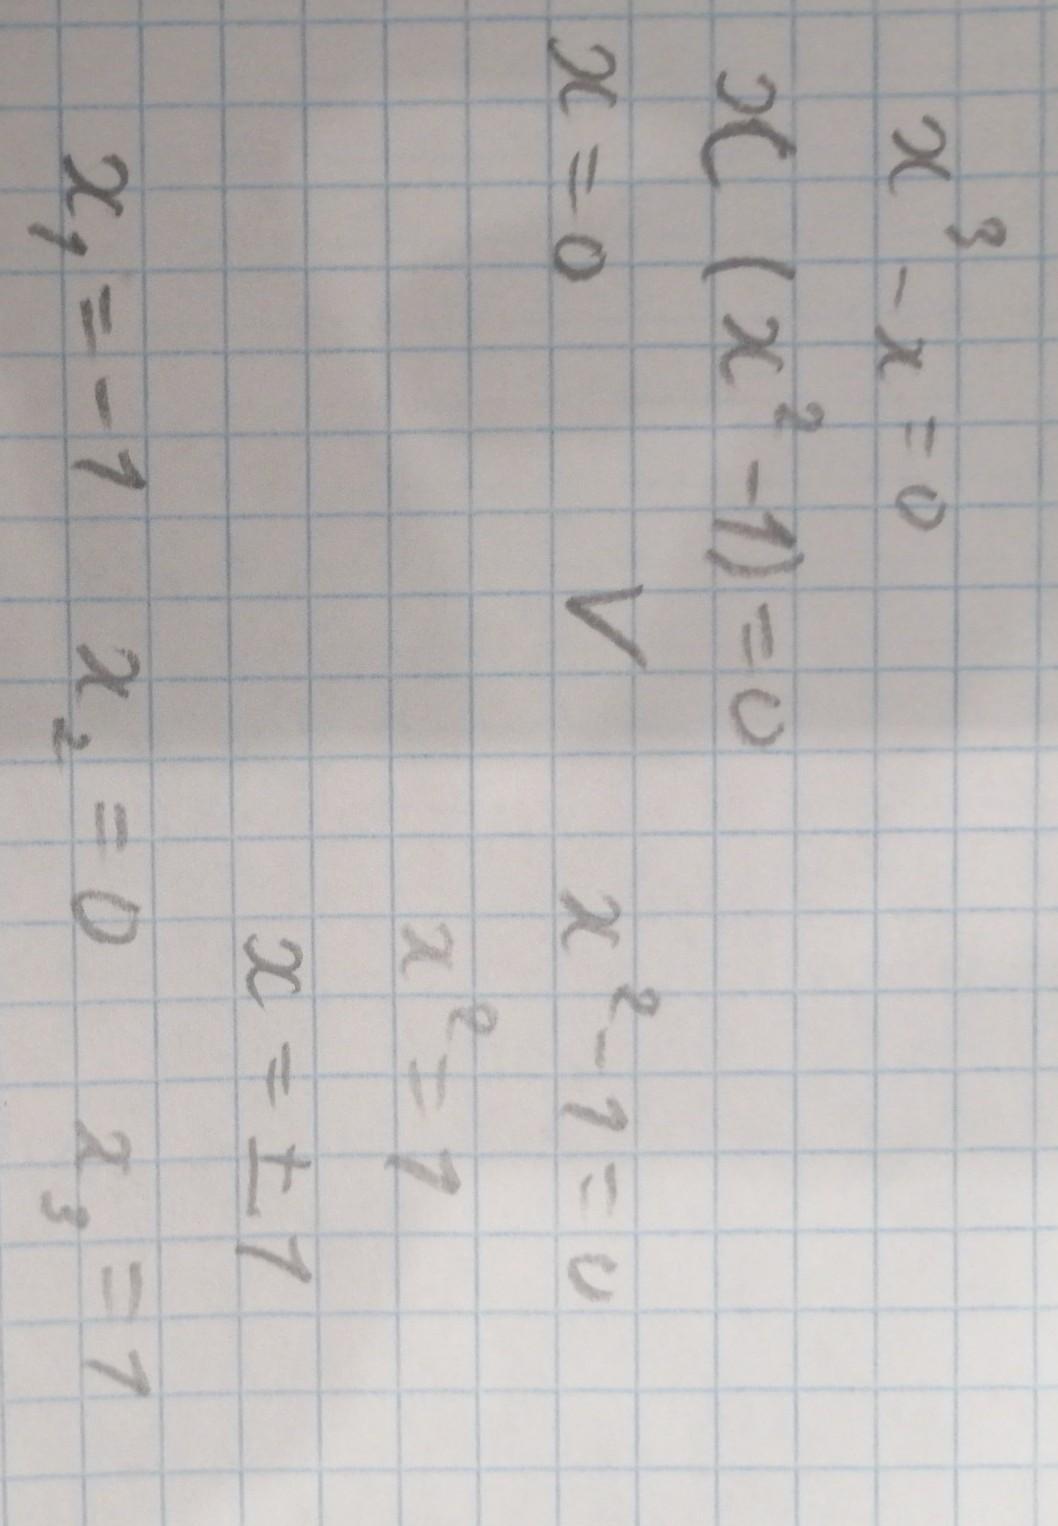 x³ - x = 0
x (x² - 1) = 0
x = 0 V x² - 1 = 0
x² = 1
x = ± 1
x₁ = -1 x₂ = 0 x₃ = 1